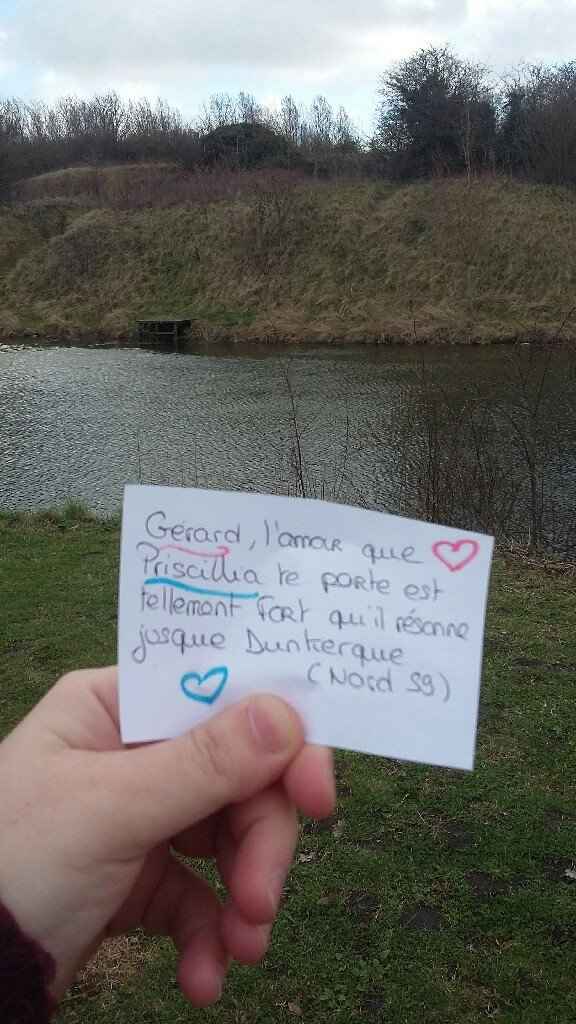 Gérard, l'amour que
Priscillia te porte est
tellement fort qu'il résonne
jusque Dunkerque
(Nord 59)